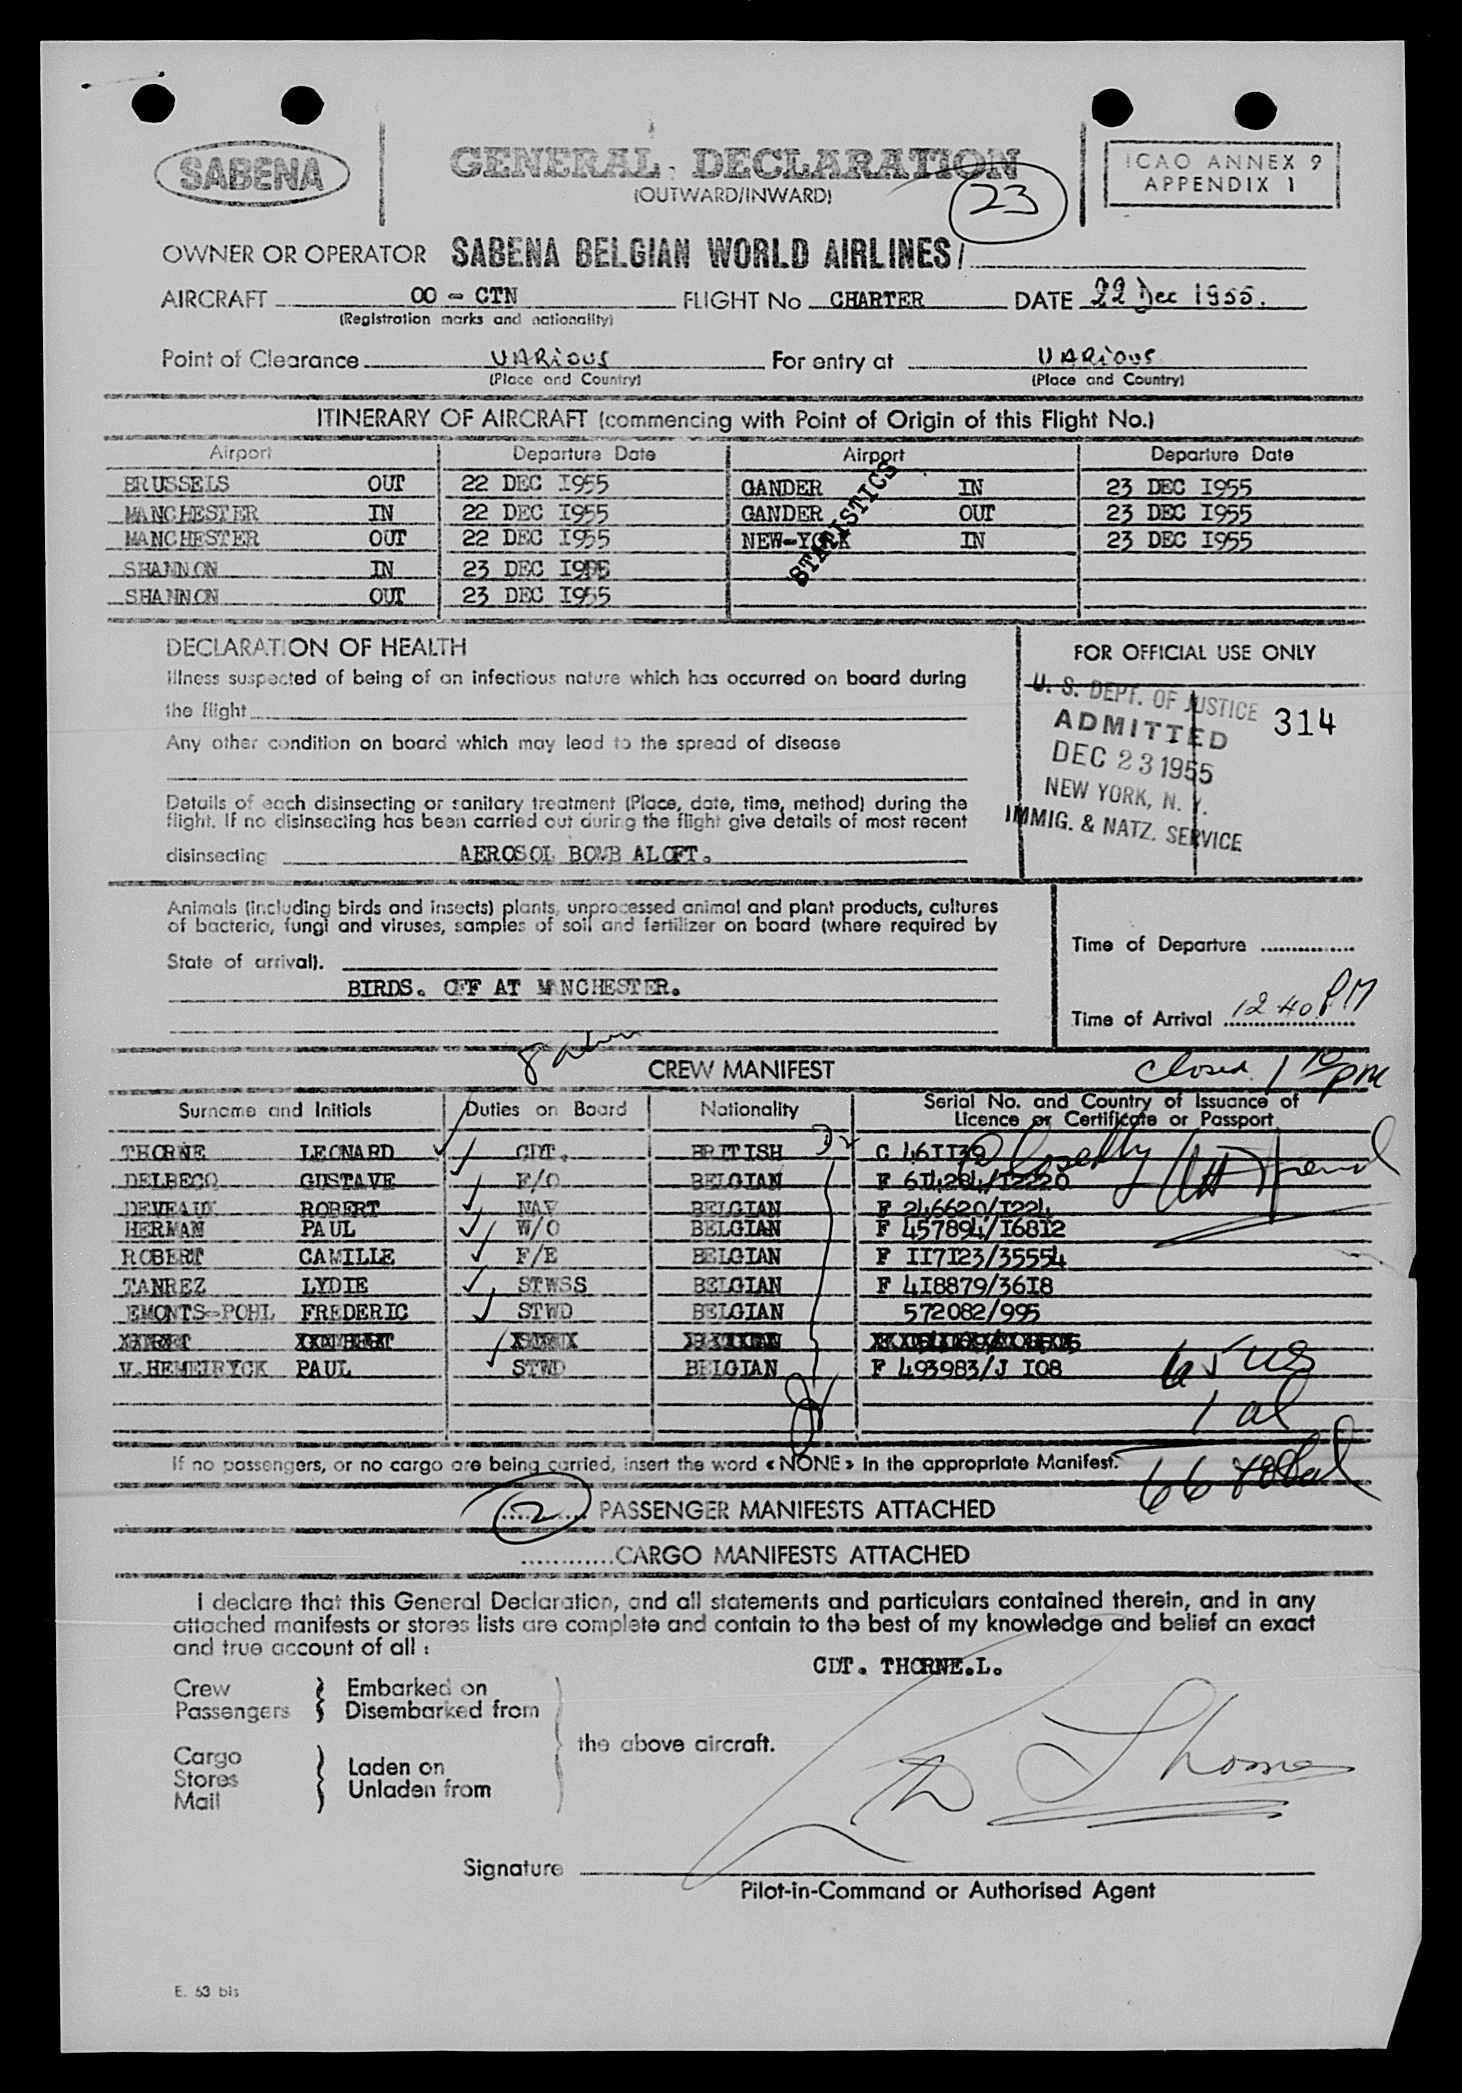 SABENA
GENERAL DECLARATION
(OUTWARD/INWARD)
23
ICAO ANNEX 9
APPENDIX 1
OWNER OR OPERATOR SABENA BELGIAN WORLD AIRLINES
AIRCRAFT OO - CTN FLIGHT No CHARTER DATE 22 Dec 1955.
(Registration marks and nationality)
Point of Clearance VARIOUS For entry at VARIOUS
(Place and Country) (Place and Country)
ITINERARY OF AIRCRAFT (commencing with Point of Origin of this Flight No.)
Airport Departure Date Airport Departure Date
BRUSSELS OUT 22 DEC I955 GANDER IN 23 DEC I955
MANCHESTER IN 22 DEC I955 GANDER OUT 23 DEC I955
MANCHESTER OUT 22 DEC I955 NEW-YORK IN 23 DEC I955
SHANNON IN 23 DEC I955
SHANNON OUT 23 DEC I955
STATISTICS
DECLARATION OF HEALTH
Illness suspected of being of an infectious nature which has occurred on board during
the flight
Any other condition on board which may lead to the spread of disease
Details of each disinsecting or sanitary treatment (Place, date, time, method) during the
flight. If no disinsecting has been carried out during the flight give details of most recent
disinsecting AEROSOL BOMB ALOFT.
FOR OFFICIAL USE ONLY
U. S. DEPT. OF JUSTICE
ADMITTED
DEC 23 1955
NEW YORK, N. Y.
IMMIG. & NATZ. SERVICE
314
Animals (including birds and insects) plants, unprocessed animal and plant products, cultures
of bacteria, fungi and viruses, samples of soil and fertilizer on board (where required by
State of arrival).
BIRDS. OFF AT MANCHESTER.
Time of Departure
Time of Arrival 12 40 PM
8
CREW MANIFEST
Closed 1 10 PM
Surname and Initials Duties on Board Nationality Serial No. and Country of Issuance of
Licence or Certificate or Passport
THORNE LEONARD CDT. BRITISH C 46II39
DELBECQ GUSTAVE F/O BELGIAN F 6I4284/I2220
DEVEAUX ROBERT NAV BELGIAN F 246620/I224
HERMAN PAUL W/O BELGIAN F 457894/I68I2
ROBERT CAMILLE F/E BELGIAN F II7I23/35554
TANREZ LYDIE STWSS BELGIAN F 4I8879/36I8
EMONTS-POHL FREDERIC STWD BELGIAN 572082/995
V.HEMEIRYCK PAUL STWD BELGIAN F 493983/J I08
65 us
1 al
66 total
If no passengers, or no cargo are being carried, insert the word « NONE » in the appropriate Manifest.
2 PASSENGER MANIFESTS ATTACHED
CARGO MANIFESTS ATTACHED
I declare that this General Declaration, and all statements and particulars contained therein, and in any
attached manifests or stores lists are complete and contain to the best of my knowledge and belief an exact
and true account of all :
CDT. THORNE.L.
Crew Embarked on
Passengers Disembarked from
the above aircraft.
Cargo
Stores Laden on
Mail Unladen from
Signature
Pilot-in-Command or Authorised Agent
E. 53 bis